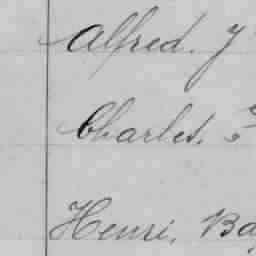 Alfred. J
Charles.
Henri. Ba